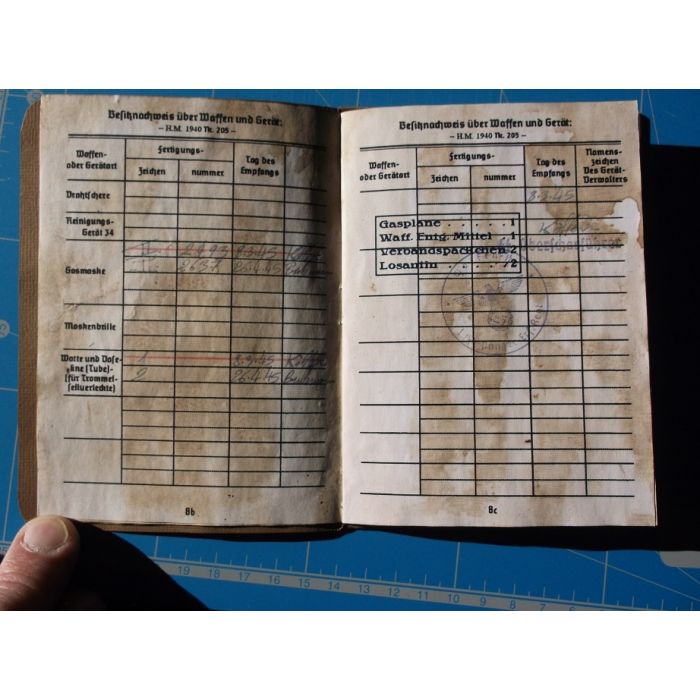 Besitznachweis über Waffen und Gerät:
– H.M. 1940 Nr. 205 –
Waffen- oder Geräteart
Fertigungs-
Zeichen
nummer
Tag des Empfangs
Drahtschere
Reinigungs-
Gerät 34
Gasmaske
Maskenbrille
Watte und Vase-
line (Tube)-
(für Trommel-
fellverletzte)
1
2
26.4.45
8b
Besitznachweis über Waffen und Gerät:
– H.M. 1940 Nr. 205 –
Waffen-
oder Geräteart
Fertigungs-
Zeichen
nummer
Tag des
Empfangs
Namens-
zeichen
Des Gerät-
Verwalters
8.3.45
Gasplane . . . . . . 1
Waff. Entg. Mittel . 1
Verbandspäckchen 2
Losantin . . . . . 2
8c
19 18 17 16 15 14 13 12 11 10 9 8 7 6